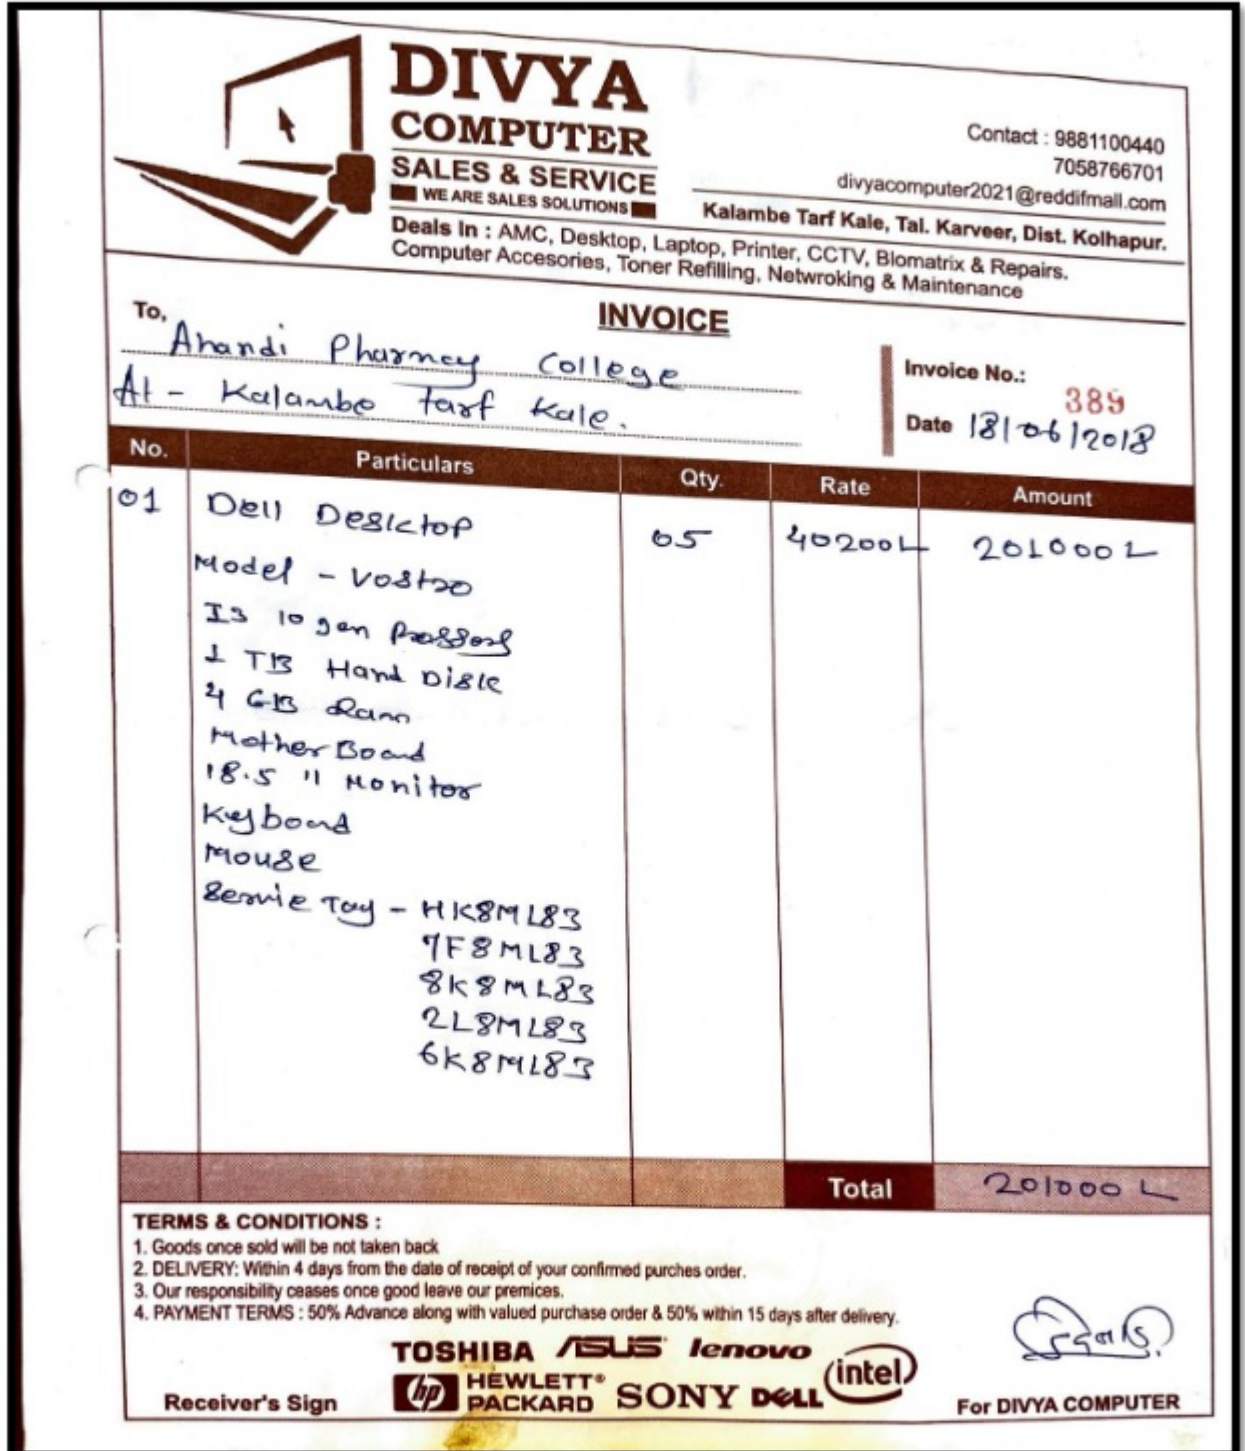 DIVYA
COMPUTER
SALES & SERVICE
WE ARE SALES SOLUTIONS
Contact : 9881100440
7058766701
divyacomputer2021@reddifmail.com
Kalambe Tarf Kale, Tal. Karveer, Dist. Kolhapur.
Deals In : AMC, Desktop, Laptop, Printer, CCTV, Biomatrix & Repairs.
Computer Accesories, Toner Refilling, Netwroking & Maintenance
INVOICE
To,
Anandi Pharmcy College
At - Kalambe tarf Kale.
Invoice No.:
389
Date 18/06/2018
No. Particulars Qty. Rate Amount
01 Dell Desktop 05 40200L 201000L
Model - Vostro
I3 10 gen
1 TB Hard Disk
4 GB Ram
Mother Board
18.5 " Monitor
Keyboard
Mouse
Servie Tag - HK8ML83
7F8ML83
8K8ML83
2L8ML83
6K8ML83
Total 201000L
TERMS & CONDITIONS :
1. Goods once sold will be not taken back
2. DELIVERY: Within 4 days from the date of receipt of your confirmed purches order.
3. Our responsibility ceases once good leave our premices.
4. PAYMENT TERMS : 50% Advance along with valued purchase order & 50% within 15 days after delivery.
TOSHIBA ASUS lenovo
hp HEWLETT® PACKARD SONY DELL intel
Receiver's Sign
For DIVYA COMPUTER